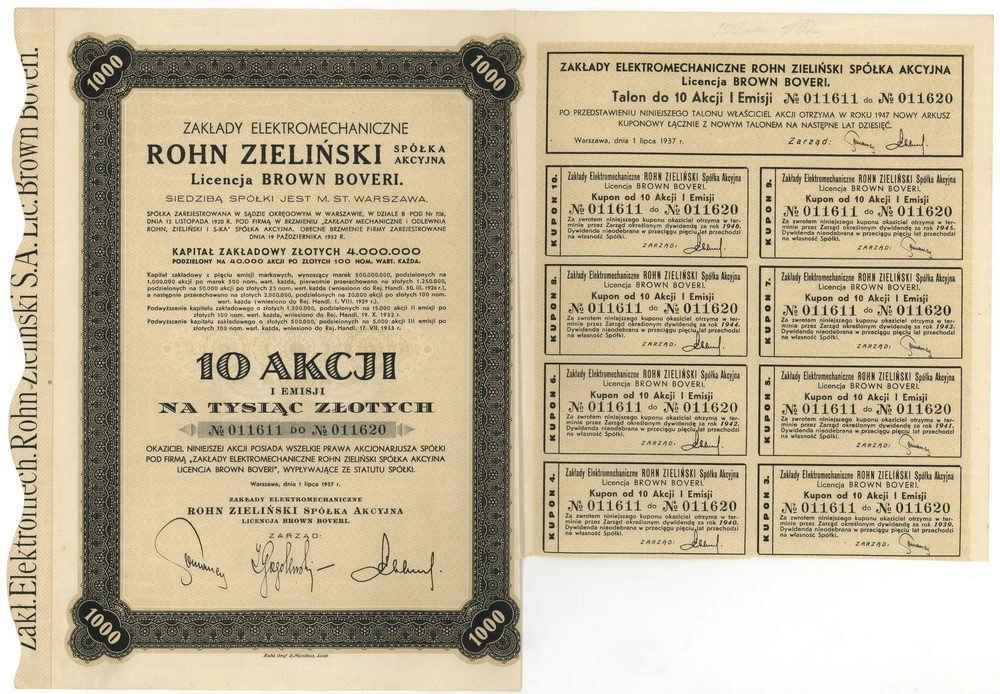 Zakł. Elektromech. Rohn-Zieliński S.A. Lic. Brown Boveri.
1000
1000
ZAKŁADY ELEKTROMECHANICZNE
ROHN ZIELIŃSKI SPÓŁKA AKCYJNA
Licencja BROWN BOVERI.
SIEDZIBĄ SPÓŁKI JEST M. ST. WARSZAWA.
SPÓŁKA ZAREJESTROWANA W SĄDZIE OKRĘGOWYM W WARSZAWIE, W DZIALE B POD Nr 706,
DNIA 12 LISTOPADA 1920 R. POD FIRMĄ W BRZMIENIU „ZAKŁADY MECHANICZNE I ODLEWNIA
ROHN, ZIELIŃSKI I S-KA" SPÓŁKA AKCYJNA. OBECNE BRZMIENIE FIRMY ZAREJESTROWANE
DNIA 19 PAŹDZIERNIKA 1932 R.
KAPITAŁ ZAKŁADOWY ZŁOTYCH 4.000.000
PODZIELONY NA 40.000 AKCJI PO ZŁOTYCH 100 NOM. WART. KAŻDA.
Kapitał zakładowy z pięciu emisji markowych, wynoszący marek 500,000,000, podzielonych na
1.000.000 akcji po marek 500 nom. wart. każda, pierwotnie przerachowano na złotych 1.250.000,
podzielonych na 50.000 akcji po złotych 25 nom. wart. każda (wniesiono do Rej. Handl. 30. III. 1926 r.),
a następnie przerachowano na złotych 2.000.000, podzielonych na 20.000 akcji po złotych 100 nom.
wart. każda (wniesiono do Rej. Handl. 1. VIII. 1929 r.)
Podwyższenie kapitału zakładowego o złotych 1.500.000, podzielonych na 15.000 akcji II emisji po
złotych 100 nom. wart. każda, wniesiono do Rej. Handl. 19. X. 1932 r.
Podwyższenie kapitału zakładowego o złotych 500.000, podzielonych na 5.000 akcji III emisji po
złotych 100 nom. wart. każda, wniesiono do Rej. Handl. 17. VII. 1935 r.
10 AKCJI
I EMISJI
NA TYSIĄC ZŁOTYCH
№ 011611 DO № 011620
OKAZICIEL NINIEJSZEJ AKCJI POSIADA WSZELKIE PRAWA AKCJONARJUSZA SPÓŁKI
POD FIRMĄ „ZAKŁADY ELEKTROMECHANICZNE ROHN ZIELIŃSKI SPÓŁKA AKCYJNA
LICENCJA BROWN BOVERI", WYPŁYWAJĄCE ZE STATUTU SPÓŁKI.
Warszawa, dnia 1 lipca 1937 r.
ZAKŁADY ELEKTROMECHANICZNE
ROHN ZIELIŃSKI SPÓŁKA AKCYJNA
LICENCJA BROWN BOVERI.
ZARZĄD:
1000
1000
ZAKŁADY ELEKTROMECHANICZNE ROHN ZIELIŃSKI SPÓŁKA AKCYJNA
Licencja BROWN BOVERI.
Talon do 10 Akcji I Emisji № 011611 do № 011620
PO PRZEDSTAWIENIU NINIEJSZEGO TALONU WŁAŚCICIEL AKCJI OTRZYMA W ROKU 1947 NOWY ARKUSZ
KUPONOWY ŁĄCZNIE Z NOWYM TALONEM NA NASTĘPNE LAT DZIESIĘĆ.
Warszawa, dnia 1 lipca 1937 r. Zarząd:
KUPON 10.
Zakłady Elektromechaniczne ROHN ZIELIŃSKI Spółka Akcyjna
Licencja BROWN BOVERI.
Kupon od 10 Akcji I Emisji
№ 011611 do № 011620
Za zwrotem niniejszego kuponu okaziciel otrzyma w ter-
minie przez Zarząd określonym dywidendę za rok 1946.
Dywidenda nieodebrana w przeciągu pięciu lat przechodzi
na własność Spółki.
ZARZĄD:
KUPON 9.
Zakłady Elektromechaniczne ROHN ZIELIŃSKI Spółka Akcyjna
Licencja BROWN BOVERI.
Kupon od 10 Akcji I Emisji
№ 011611 do № 011620
Za zwrotem niniejszego kuponu okaziciel otrzyma w ter-
minie przez Zarząd określonym dywidendę za rok 1945.
Dywidenda nieodebrana w przeciągu pięciu lat przechodzi
na własność Spółki.
ZARZĄD:
KUPON 8.
Zakłady Elektromechaniczne ROHN ZIELIŃSKI Spółka Akcyjna
Licencja BROWN BOVERI.
Kupon od 10 Akcji I Emisji
№ 011611 do № 011620
Za zwrotem niniejszego kuponu okaziciel otrzyma w ter-
minie przez Zarząd określonym dywidendę za rok 1944.
Dywidenda nieodebrana w przeciągu pięciu lat przechodzi
na własność Spółki.
ZARZĄD:
KUPON 7.
Zakłady Elektromechaniczne ROHN ZIELIŃSKI Spółka Akcyjna
Licencja BROWN BOVERI.
Kupon od 10 Akcji I Emisji
№ 011611 do № 011620
Za zwrotem niniejszego kuponu okaziciel otrzyma w ter-
minie przez Zarząd określonym dywidendę za rok 1943.
Dywidenda nieodebrana w przeciągu pięciu lat przechodzi
na własność Spółki.
ZARZĄD:
KUPON 6.
Zakłady Elektromechaniczne ROHN ZIELIŃSKI Spółka Akcyjna
Licencja BROWN BOVERI.
Kupon od 10 Akcji I Emisji
№ 011611 do № 011620
Za zwrotem niniejszego kuponu okaziciel otrzyma w ter-
minie przez Zarząd określonym dywidendę za rok 1942.
Dywidenda nieodebrana w przeciągu pięciu lat przechodzi
na własność Spółki.
ZARZĄD:
KUPON 5.
Zakłady Elektromechaniczne ROHN ZIELIŃSKI Spółka Akcyjna
Licencja BROWN BOVERI.
Kupon od 10 Akcji I Emisji
№ 011611 do № 011620
Za zwrotem niniejszego kuponu okaziciel otrzyma w ter-
minie przez Zarząd określonym dywidendę za rok 1941.
Dywidenda nieodebrana w przeciągu pięciu lat przechodzi
na własność Spółki.
ZARZĄD:
KUPON 4.
Zakłady Elektromechaniczne ROHN ZIELIŃSKI Spółka Akcyjna
Licencja BROWN BOVERI.
Kupon od 10 Akcji I Emisji
№ 011611 do № 011620
Za zwrotem niniejszego kuponu okaziciel otrzyma w ter-
minie przez Zarząd określonym dywidendę za rok 1940.
Dywidenda nieodebrana w przeciągu pięciu lat przechodzi
na własność Spółki.
ZARZĄD:
KUPON 3.
Zakłady Elektromechaniczne ROHN ZIELIŃSKI Spółka Akcyjna
Licencja BROWN BOVERI.
Kupon od 10 Akcji I Emisji
№ 011611 do № 011620
Za zwrotem niniejszego kuponu okaziciel otrzyma w ter-
minie przez Zarząd określonym dywidendę za rok 1939.
Dywidenda nieodebrana w przeciągu pięciu lat przechodzi
na własność Spółki.
ZARZĄD: